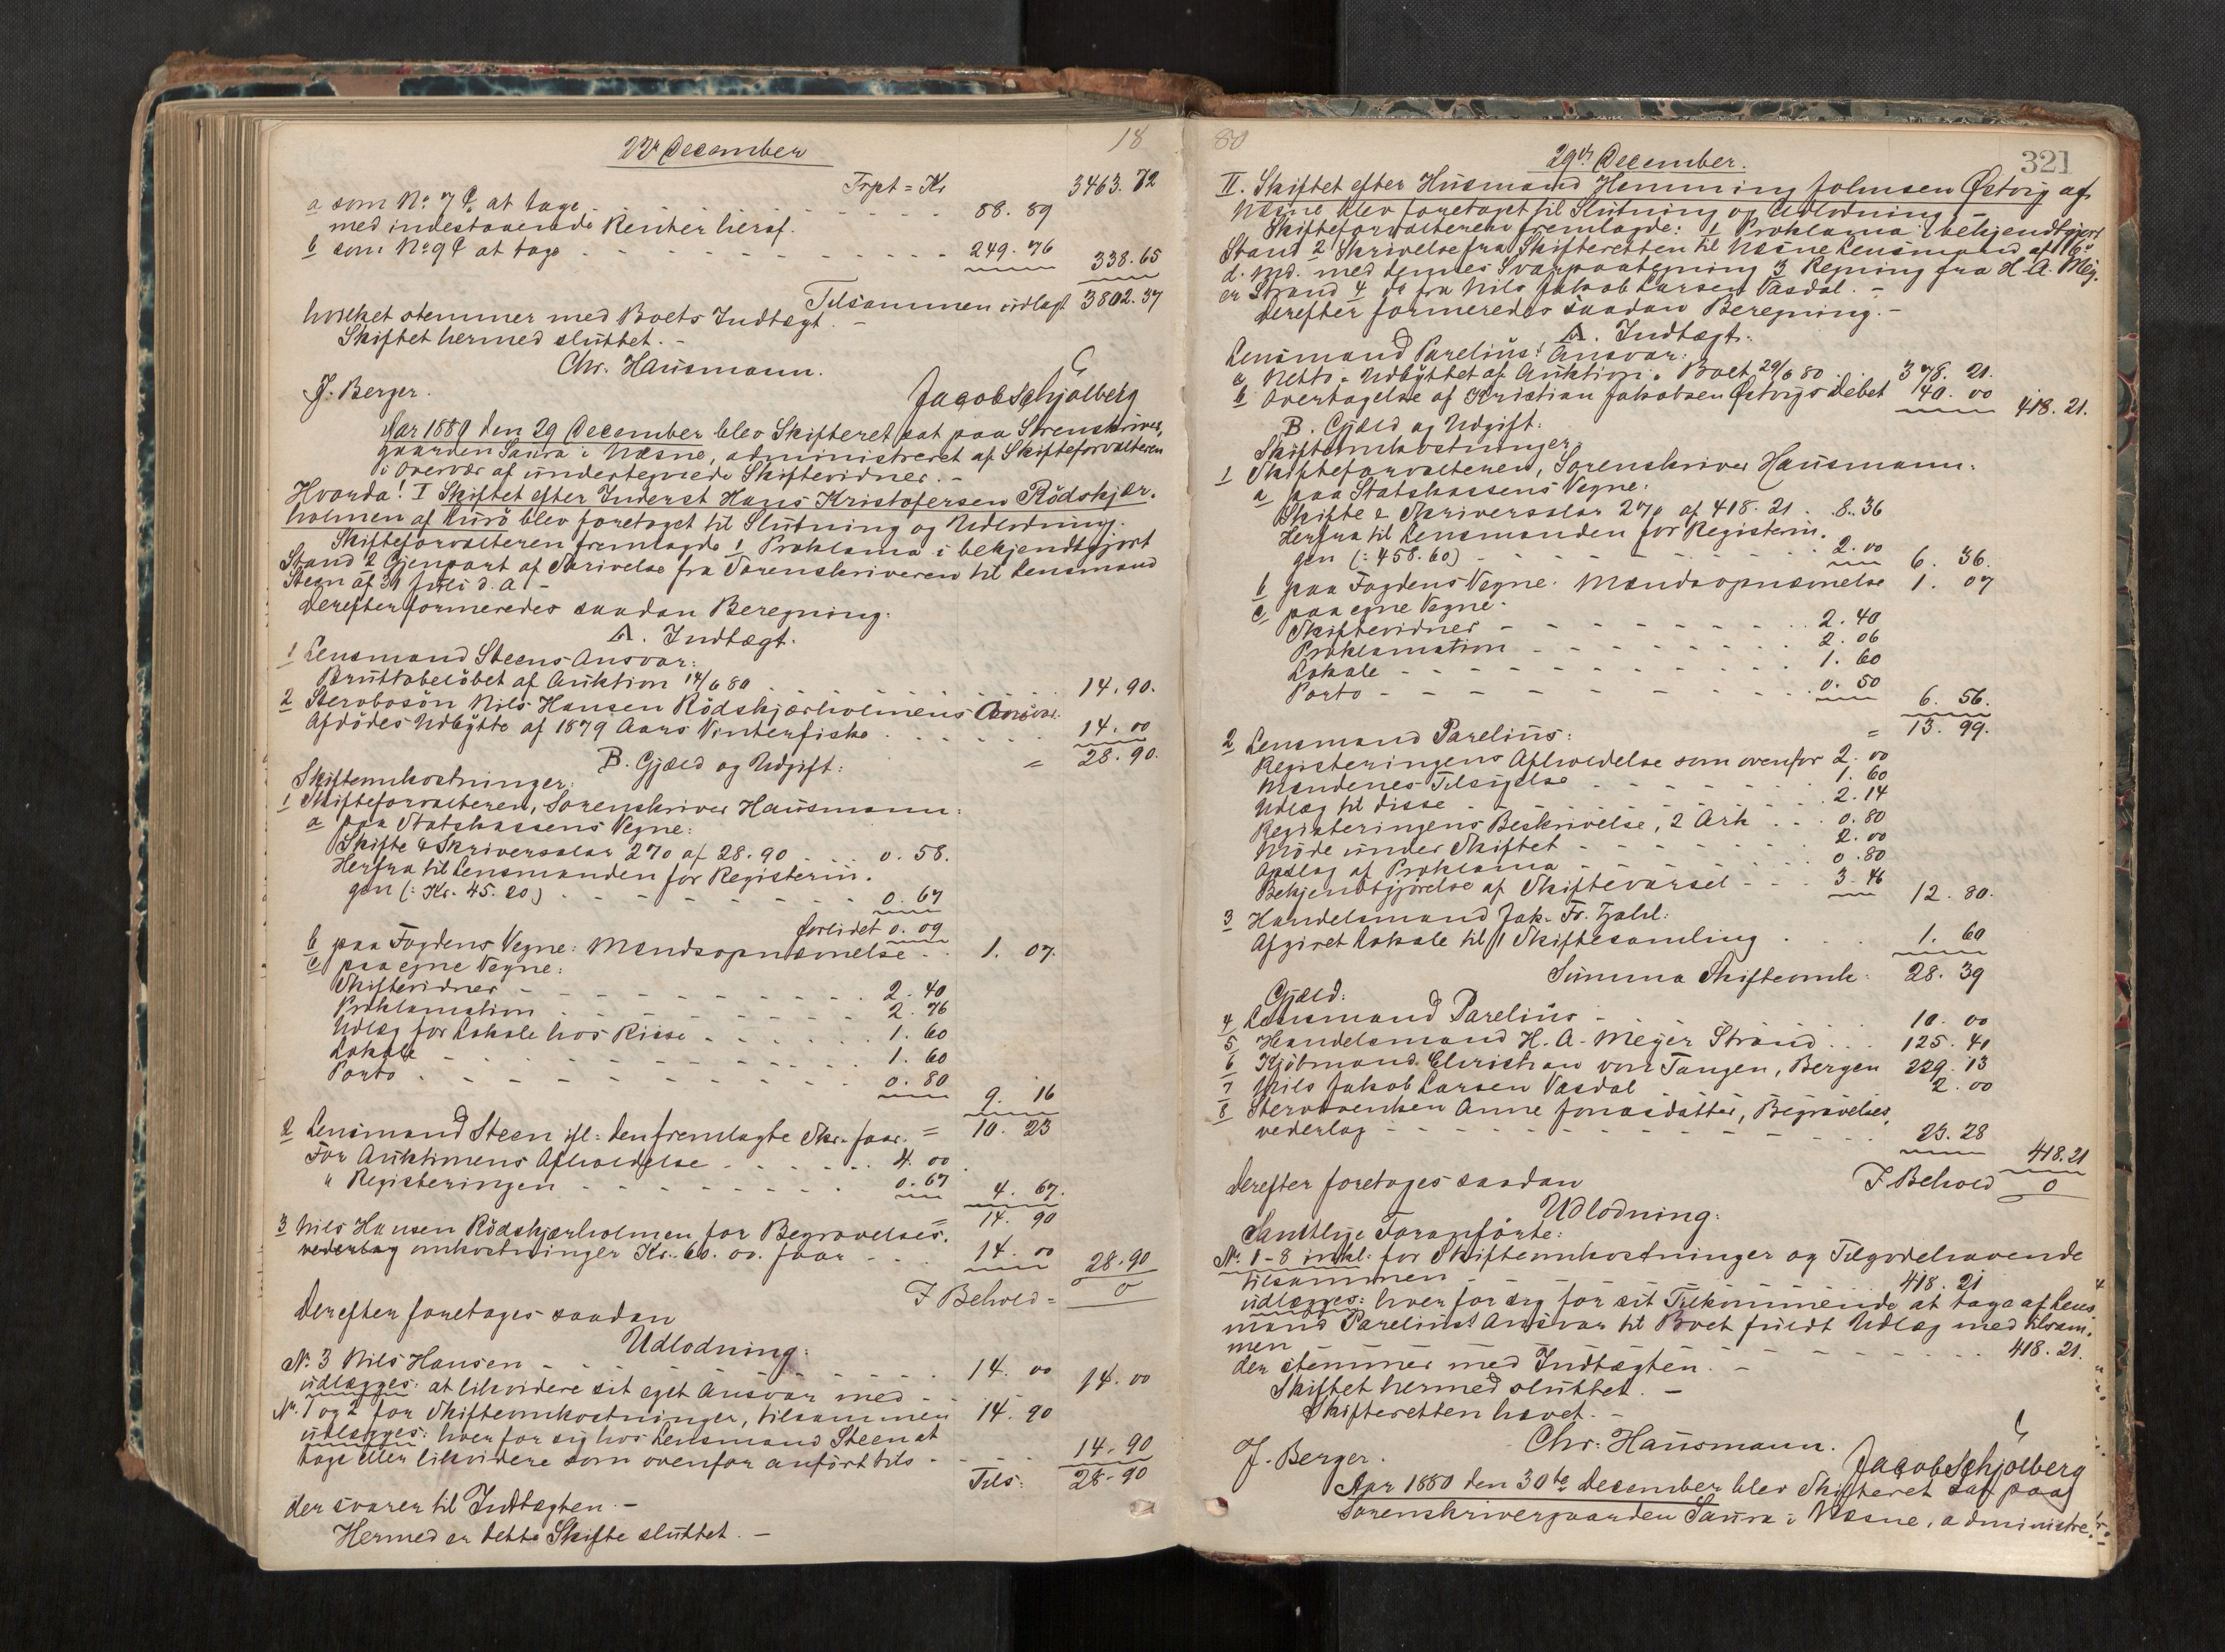 22de December
18
Trpt = Kr 3463. 72
a som No. 7 C. at tage - - - - 88. 89
med indestaaende Renter heraf.
b som No. 9 C at tage - - - - 249. 76 338. 65
Tilsammen udlagt 3802. 37
hvilket stemmer med Boets Indtægt. -
Skiftet hermed sluttet. -
Chr. Hausmann.
J. Berger. Jacob Schjølberg
Aar 1880 den 29 December blev Skifteret sat paa Sorenskriver-
gaarden Saura i Næsne, administreret af Skifteforvalteren
i Overvær af undertegnede Skiftevidner. -
Hvorda! I Skiftet efter Inderst Hans Kristofersen Rödskjær-
holmen af Lurö blev foretaget til Slutning og Udlodning.
Skifteforvalteren fremlagde 1 Proklama i bekjendtgjort
Stand 2 Gjenpart af Skrivelse fra Sorenskriveren til Lensmand
Steen af 31 Juli d. A. -
Derefter formeredes saadan Beregning:
A. Indtægt.
1 Lensmand Steens Ansvar:
Bruttobelöbet af Auktion 14/6 80 - - - - 14. 90.
2 Stervbosön Nils Hansen Rödskjærholmens Ansvar.
Afdödes Udbytte af 1879 Aars Vinterfiske - - - 14. 00
= 28. 90.
B. Gjæld og Udgift:
Skifteomkostninger:
1 Skifteforvalteren, Sorenskriver Hausmann:
a paa Statskassens Vegne:
Skifte & Skriversalar 2% af 28. 90 - - - 0. 58.
Herfra til Lensmanden for Registerin-
gen (: Kr. 45. 20) - - - - 0. 67
forlidet 0. 09
b paa Fogdens Vegne: Mændsopnævnelse - - 1. 07.
c paa egne Vegne:
Skiftevidner - - - - 2. 40
Proklamation - - - - 2. 76
Udlæg for Lokale hos Risse - - - - 1. 60
Lokale - - - - 1. 60
Porto - - - - 0. 80
9. 16
= 10. 23
2 Lensmand Steen ifl: den fremlagte Skr. faar.
For Auktionens Afholdelse - - - - 4. 00
" Registeringen - - - - 0. 67
4. 67.
= 14. 90
3 Nils Hansen Rödskjærholmen for Begravelses-
vederlag omkostninger Kr. 60. 00. faar - - - 14. 00 28. 90
I Behold = 0
Derefter foretages saadan
Udlodning:
No. 3 Nils Hansen - - - - 14. 00
udlægges: at likvidere sit eget Ansvar med - - 14. 00
No. 1 og 2 for Skifteomkostninger, tilsammen 14. 90
udlægges: hver for sig hos Lensmand Steen at
tage eller likvidere som ovenfor anfört tils - - - 14. 90
Tils: 28. 90
der svarer til Indtægten. -
Hermed er dette Skifte sluttet. -
80
29de December.
321
II. Skiftet efter Husmand Hemming Johnsen Østvig af
Næsne blev foretaget til Slutning og Udlodning. -
Skifteforvalteren fremlagde: 1 Proklama i bekjendtgjort
Stand 2 Skrivelse fra Skifteretten til Næsne Lensmand af 16de
d. Md. med dennes Svarpaategning 3 Regning fra H. A. Mey-
er Strand 4 do fra Nils Jakob Larsen Vasdal. -
Derefter formeredes saadan Beregning. -
A. Indtægt:
Lensmand Parelius' Ansvar:
a Netto-Udbyttet af Auktion i Boet 29/6 80 . . 378. 21.
b Overtagelse af Kristian Jakobsen Østvigs Debet 40. 00 418. 21.
B. Gjæld og Udgift:
Skifteomkostninger:
1 Skifteforvalteren, Sorenskriver Hausmann:
a paa Statskassens Vegne:
Skifte & Skriversalar 2% af 418. 21 . 8. 36
Herfra til Lensmanden for Registerin-
gen (: 458. 60) - - - - 2. 00 6. 36.
b paa Fogdens Vegne: Mændsopnævnelse 1. 07
c paa egne Vegne:
Skiftevidner - - - - 2. 40
Proklamation - - - - 2. 06
Lokale - - - - 1. 60
Porto - - - - 0. 50
6. 56.
= 13. 99.
2 Lensmand Parelius:
Registeringens Afholdelse som ovenfor 2. 00
Mændenes Tilsigelse - - - - 1. 60
Udlæg til disse - - - - 2. 14
Registeringens Beskrivelse, 2 Ark . . . 0. 80
Möde under Skiftet - - - - 2. 00
Opslag af Proklama - - - - 0. 80
Bekjendtgjörelse af Skiftevarsel - - - 3. 46 12. 80.
3 Handelsmand Jak. Fr. Zahl:
Afgivet Lokale til 1 Skiftesamling . . . 1. 60
Summa Skifteomk: 28. 39
Gjæld:
4 Lensmand Parelius - - - - 10. 00
5 Handelsmand H. A. Meyer Strand . . . 125. 41
6 Kjöbmand Christian von Tangen, Bergen 229. 13
7 Nils Jakob Larsen Vasdal 2. 00
8 Stervbenken Anne Jonasdatter, Begravelses-
vederlag - - - - 23. 28
418. 21
I Behold 0
Derefter foretages saadan
Udlodning:
Samtlige Foranförte:
No. 1-8 inkl: for Skifteomkostninger og Tilgodehavende
tilsammen - - - - 418. 21
udlægges: hver for sig for sit Tilkommende at tage af Lens-
mand Parelius' Ansvar til Boet fuldt Udlæg med tilsam-
men - - - - 418. 21.
der stemmer med Indtægten. -
Skiftet hermed sluttet. -
Skifteretten hævet. -
Chr. Hausmann.
J. Berger. Jacob Schjølberg
Aar 1880 den 30te December blev Skifteret sat paa
Sorenskrivergaarden Saura i Næsne, administre-